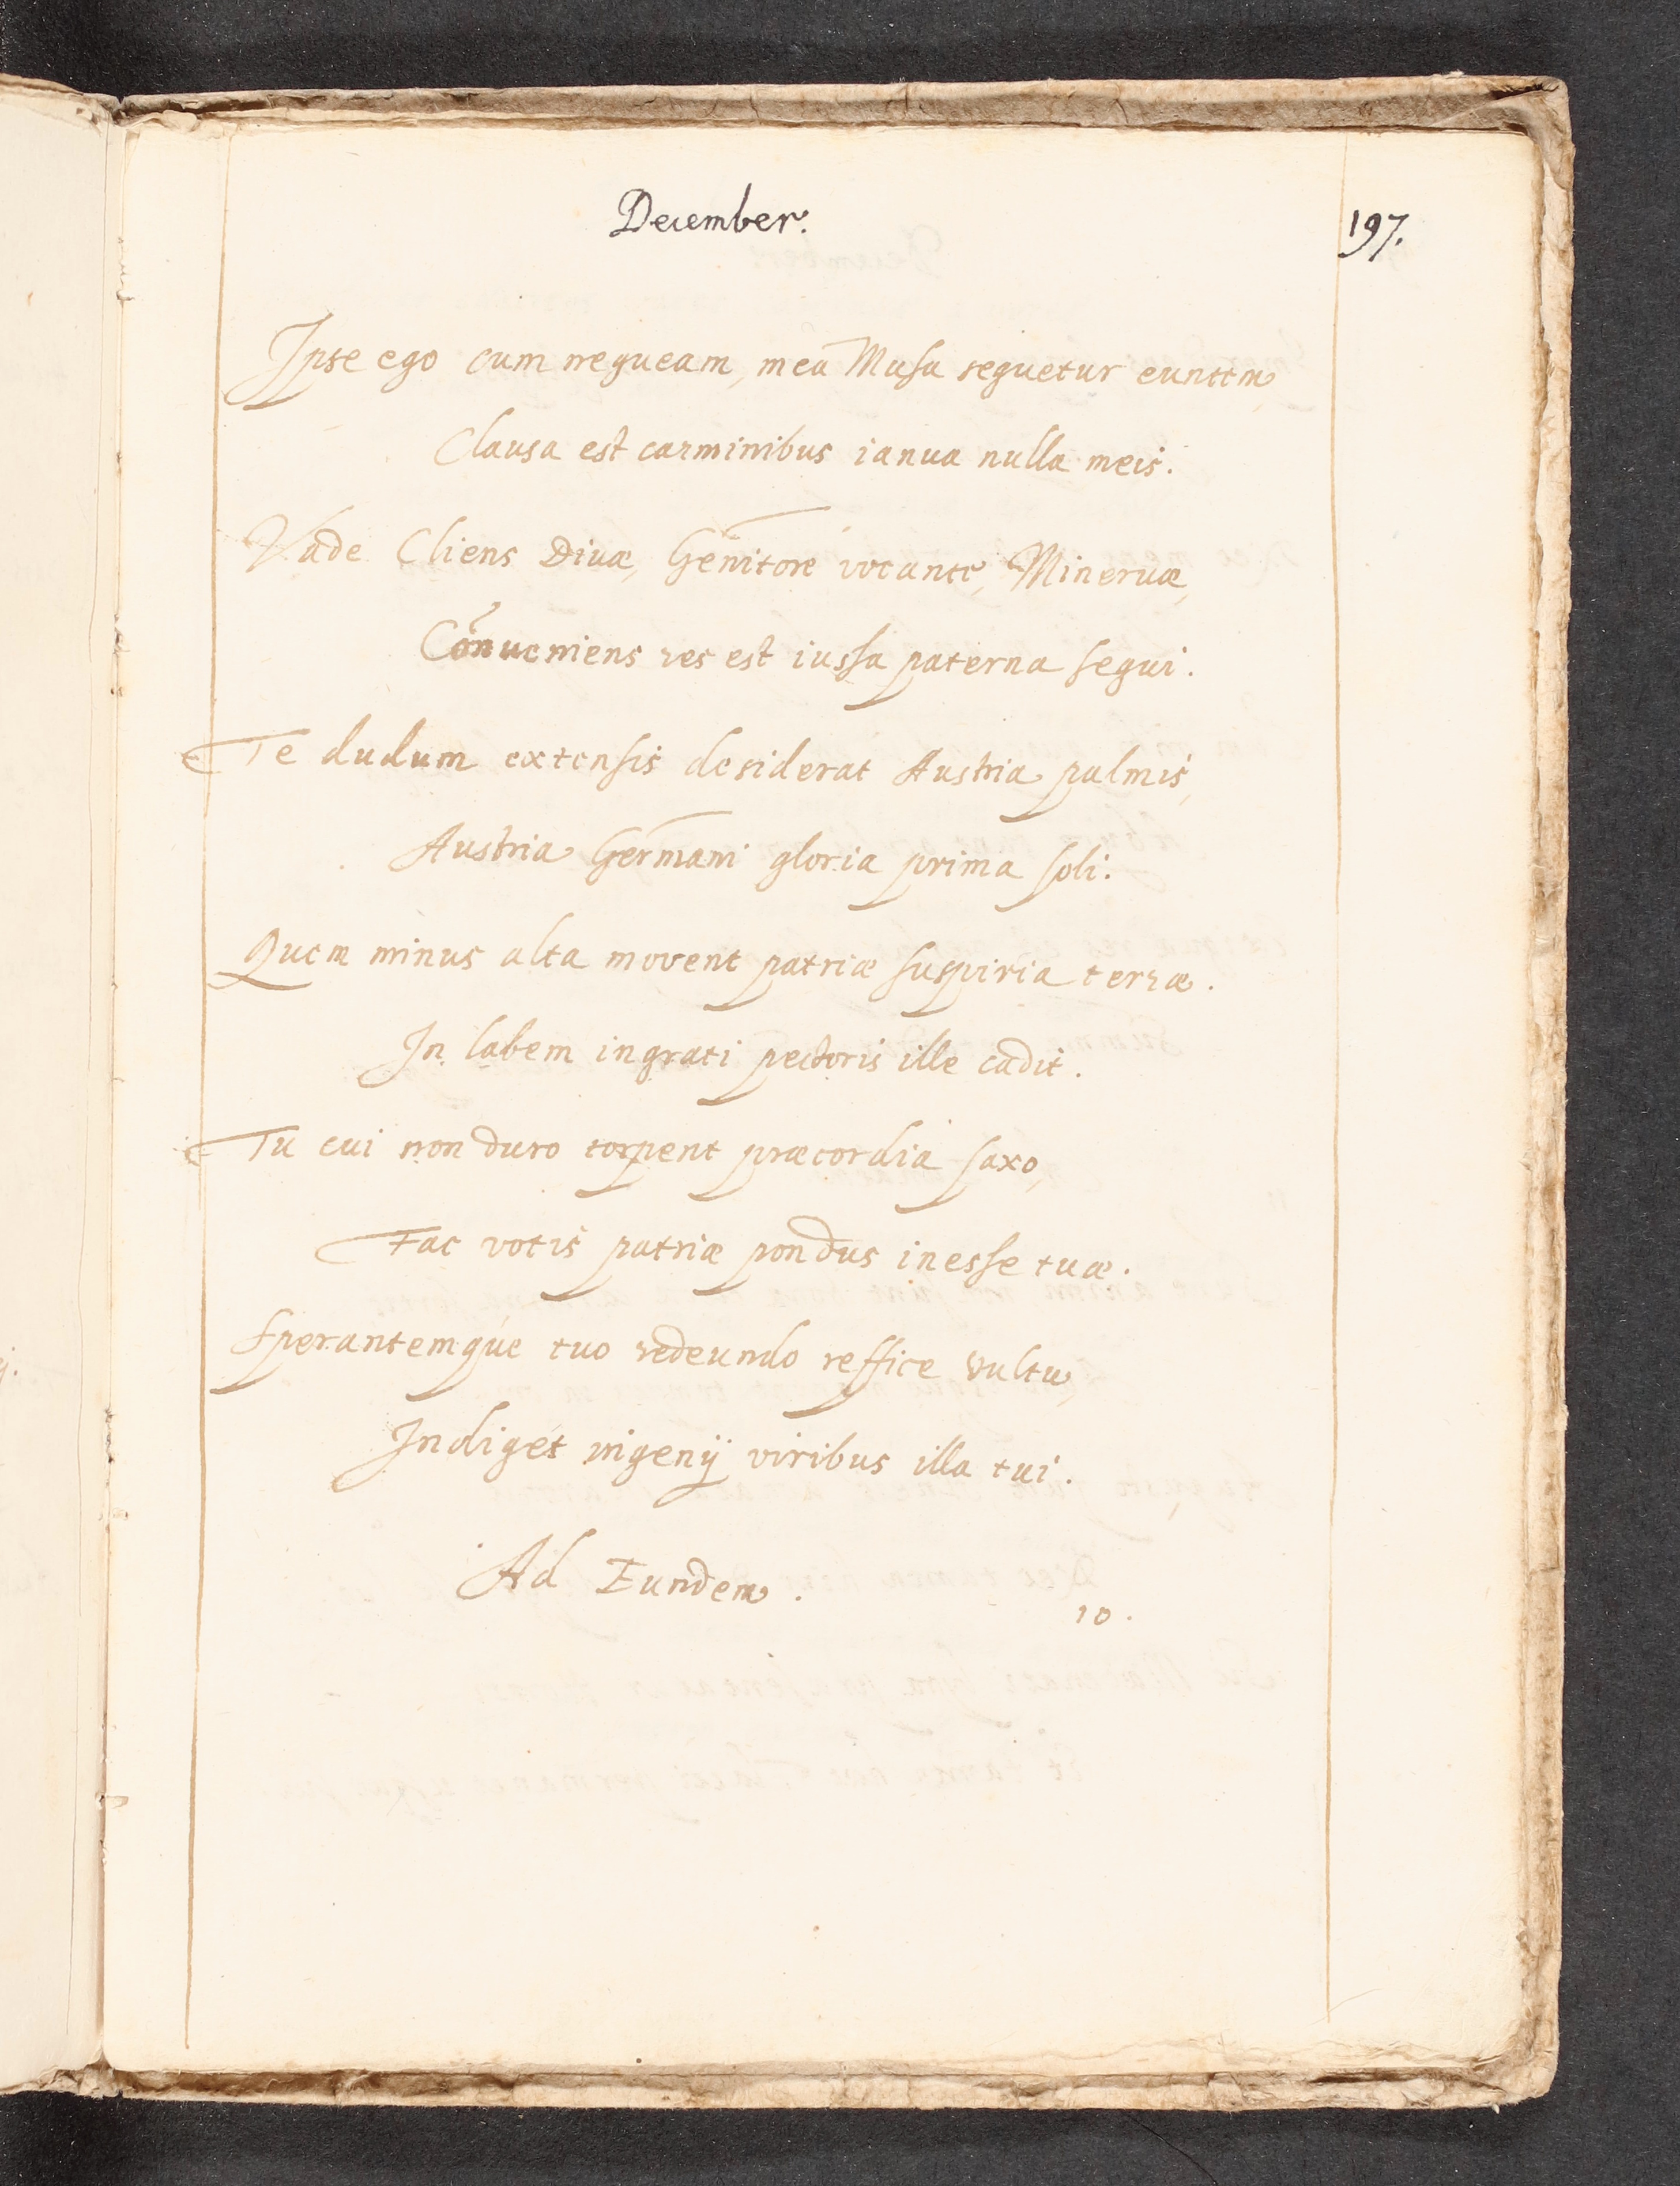 December.
197.
Ipse ego cum nequeam, mea Musa sequetur euntem,
Clausa est carminibus ianua nulla meis.
Vade Cliens Divæ, Genitore vocante, Minervæ,
Conveniens res est iussa paterna sequi.
Te dudum extensis desiderat Austria palmis,
Austria Germani gloria prima soli.
Quem minus alta movent patriæ suspiria terræ.
In labem ingrati pectoris ille cadit.
Tu cui non duro torpent præcordia saxo,
Fac votis patriæ pondus inesse tuæ.
Sperantemque tuo redeundo reffice vultu,
Indiget ingenij viribus illa tui.
Ad Eundem.
10.